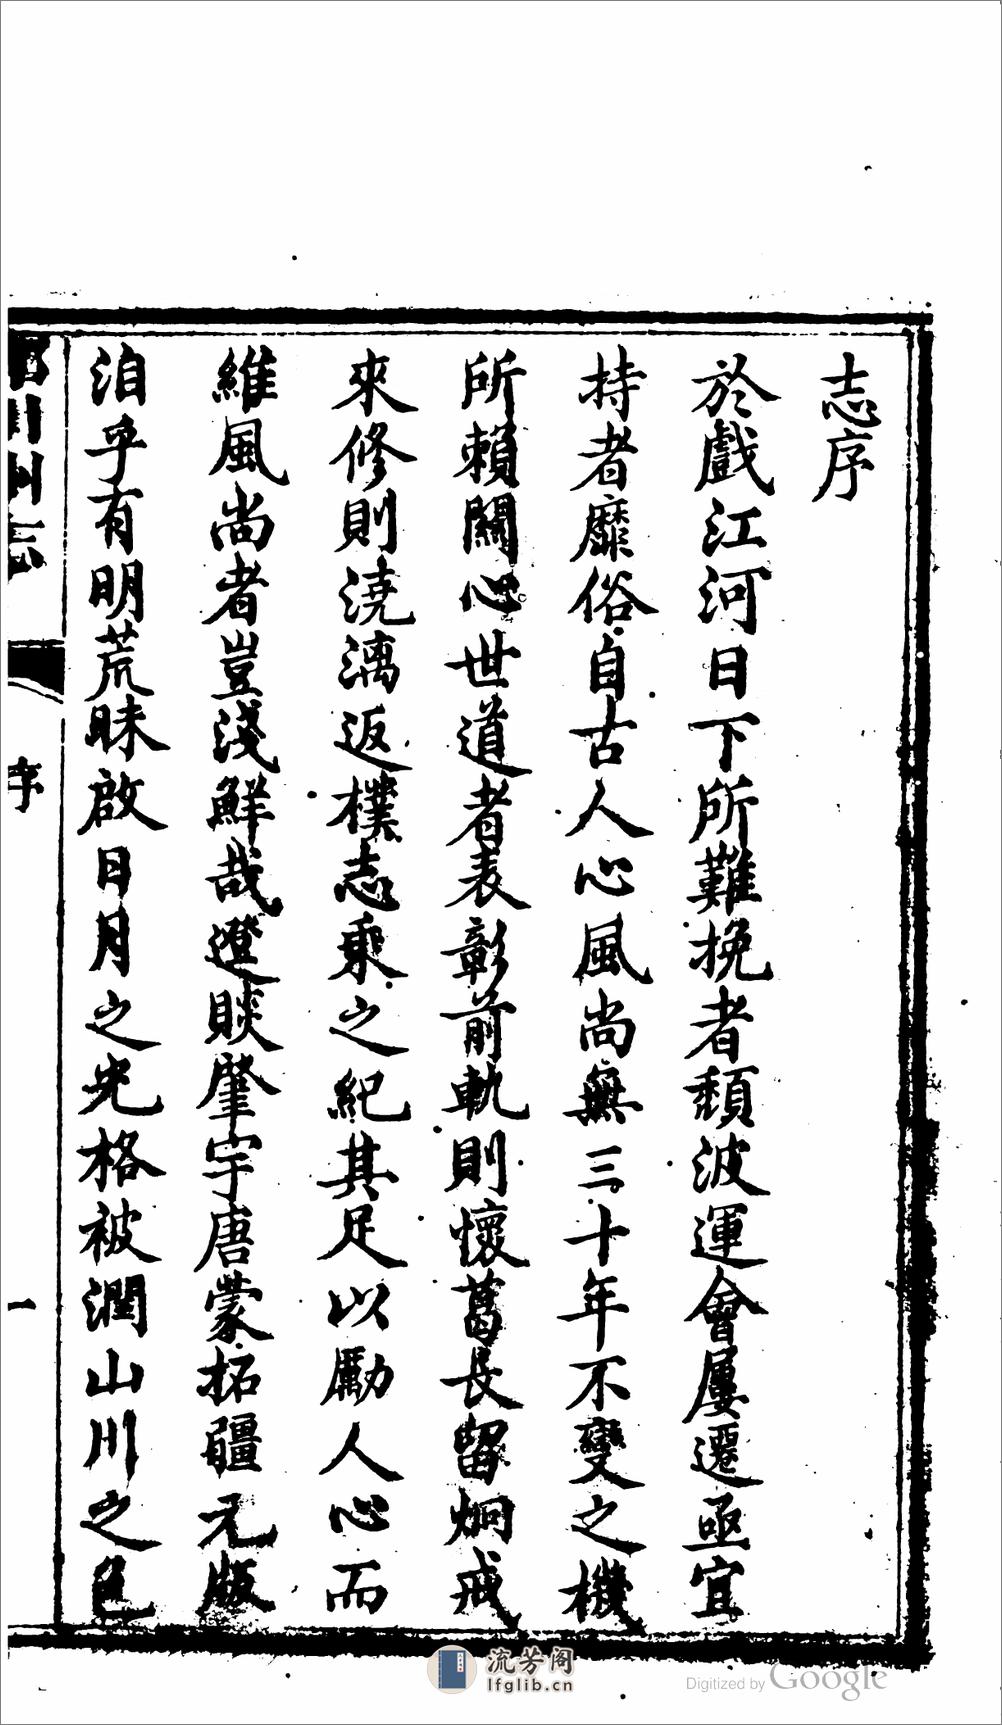 志序
於戲江河日下所難挽者頹波運會屢遷亟宜
持者靡俗自古人心風尚無三十年不變之機
所賴關心世道者表彰前軌則懷葛長留炯戒
來修則澆漓返樸志乘之紀其足以勵人心而
維風尚者豈淺鮮哉澄賧肇宇唐蒙拓疆元版
洎乎有明荒昧啟日月之光格被潤山川之色
川州志
序
一
流芳阁
lfglib.cn
Digitized by Google